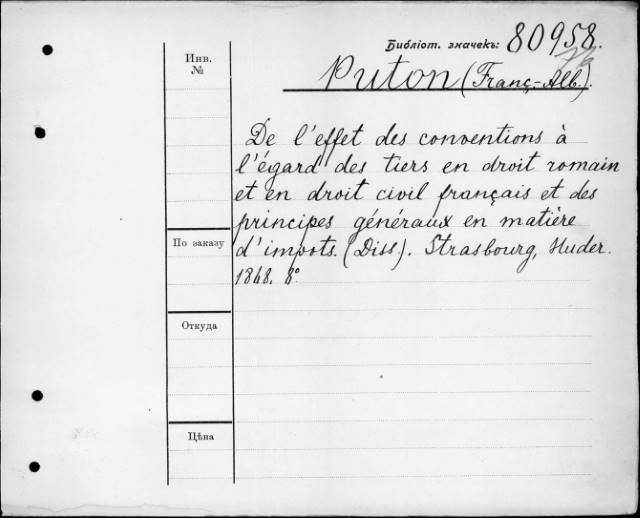 Библіот. значекъ: 80958.
Инв. №
Puton (Franç.-Alb.).
De l'effet des conventions à
l'égard des tiers en droit romain
et en droit civil français et des
principes généraux en matière
По заказу
d'impots. (Diss). Strasbourg, Huder.
1848. 8°.
Откуда
Цѣна